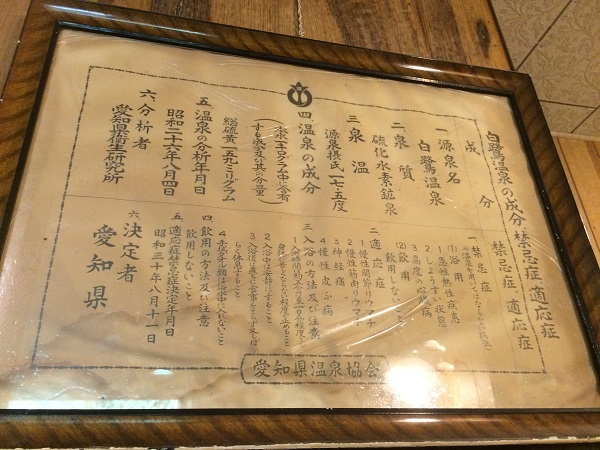 白鷺温泉の成分 禁忌症 適応症
成分
一 源泉名
白鷺温泉
二 泉質
硫化水素鉱泉
三 泉温
源泉摂氏一七・五度
四 温泉の成分
(本水一キログラム中に含有
する成分及其の分量)
総硫黄一・五九ミリグラム
五 温泉の分析年月日
昭和二十六年八月四日
六 分析者
愛知県衛生研究所
禁忌症 適応症
一 禁忌症
(1) 浴用
1 急性熱性疾患
2 しようすい状態
3 高度の
(2) 飲用
飲用しないこと
二 適応症
1 慢性関節リウマチ
2 慢性筋肉リウマチ
3 神経痛
4 慢性皮ふ病
三 入浴の方法及び注意
2 入浴中は安静にすること
四 飲用の方法及び注意
飲用しないこと
五 適応症禁忌症決定年月日
昭和三十年八月十一日
六 決定者
愛知県
愛知県温泉協会